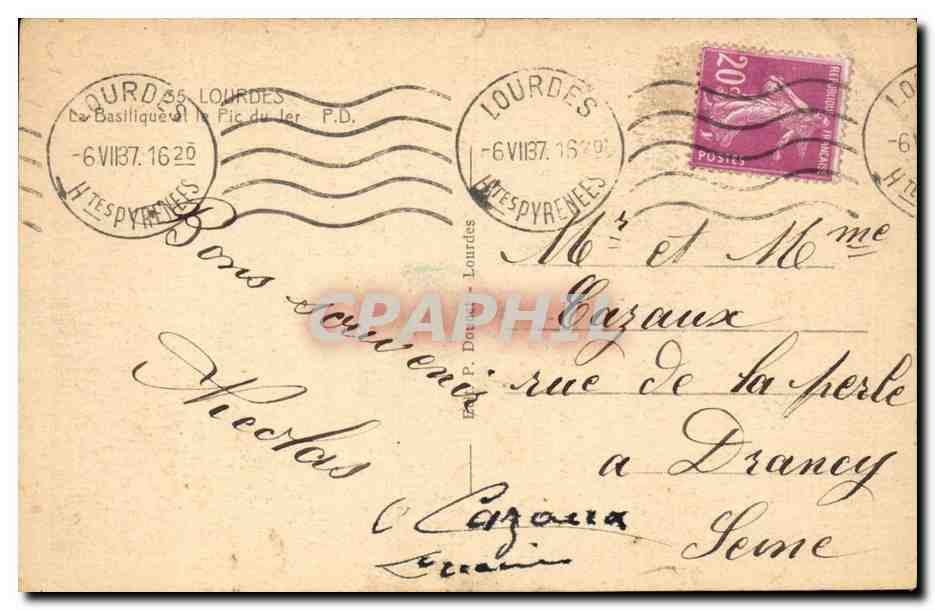 55. LOURDES
La Basilique et le Pic du Jer P.D.
LOURDES
-6 VII 37. 16 20
Htes PYRENEES
LOURDES
-6 VII 37. 16 20
Htes PYRENEES
LO
-6
Hte
20c
REPUBLIQUE FRANCAISE
POSTES
P. Doucet - Lourdes
CPAPHIL
Bons souvenir
Nicolas
Mr et Mme
Cazaux
rue de la perle
a Drancy
Seine
Cazaux